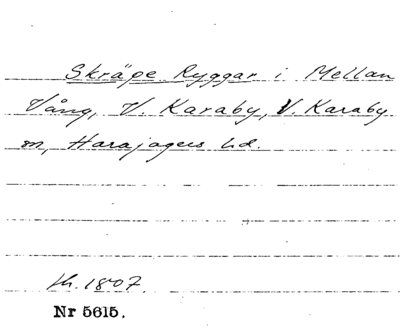 Skräpe Ryggar i Mellan
Vång, V. Karaby, V. Karaby
m, Harajagers hd.
h. 1807.
Nr 5615.